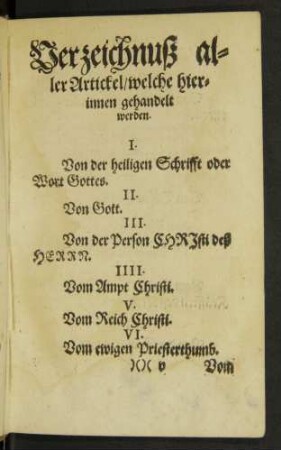 Verzeichnuß al-
ler Artickel/welche hier-
innen gehandelt
werden.
I.
Von der heiligen Schrifft oder
Wort Gottes.
II.
Von Gott.
III.
Von der Person CHRJsti deß
HERRN.
IIII.
Vom Ampt Christi.
V.
Vom Reich Christi.
VI.
Vom ewigen Priesterthumb.
)()( v Vom